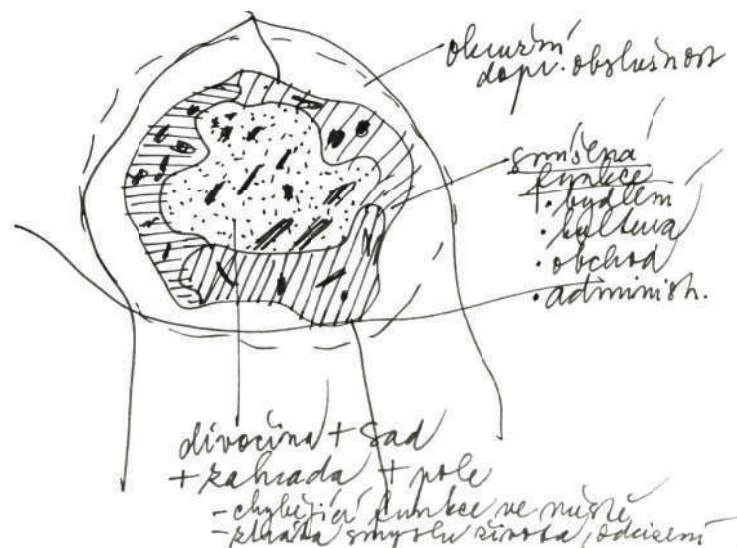 okružní
dopr. obslužnost
smíšená
funkce
• bydlení
• kultura
• obchod
• administ.
divočina + sad
+ zahrada + pole
- chybějící funkce ve městě
- ztráta smyslu života, odcizení